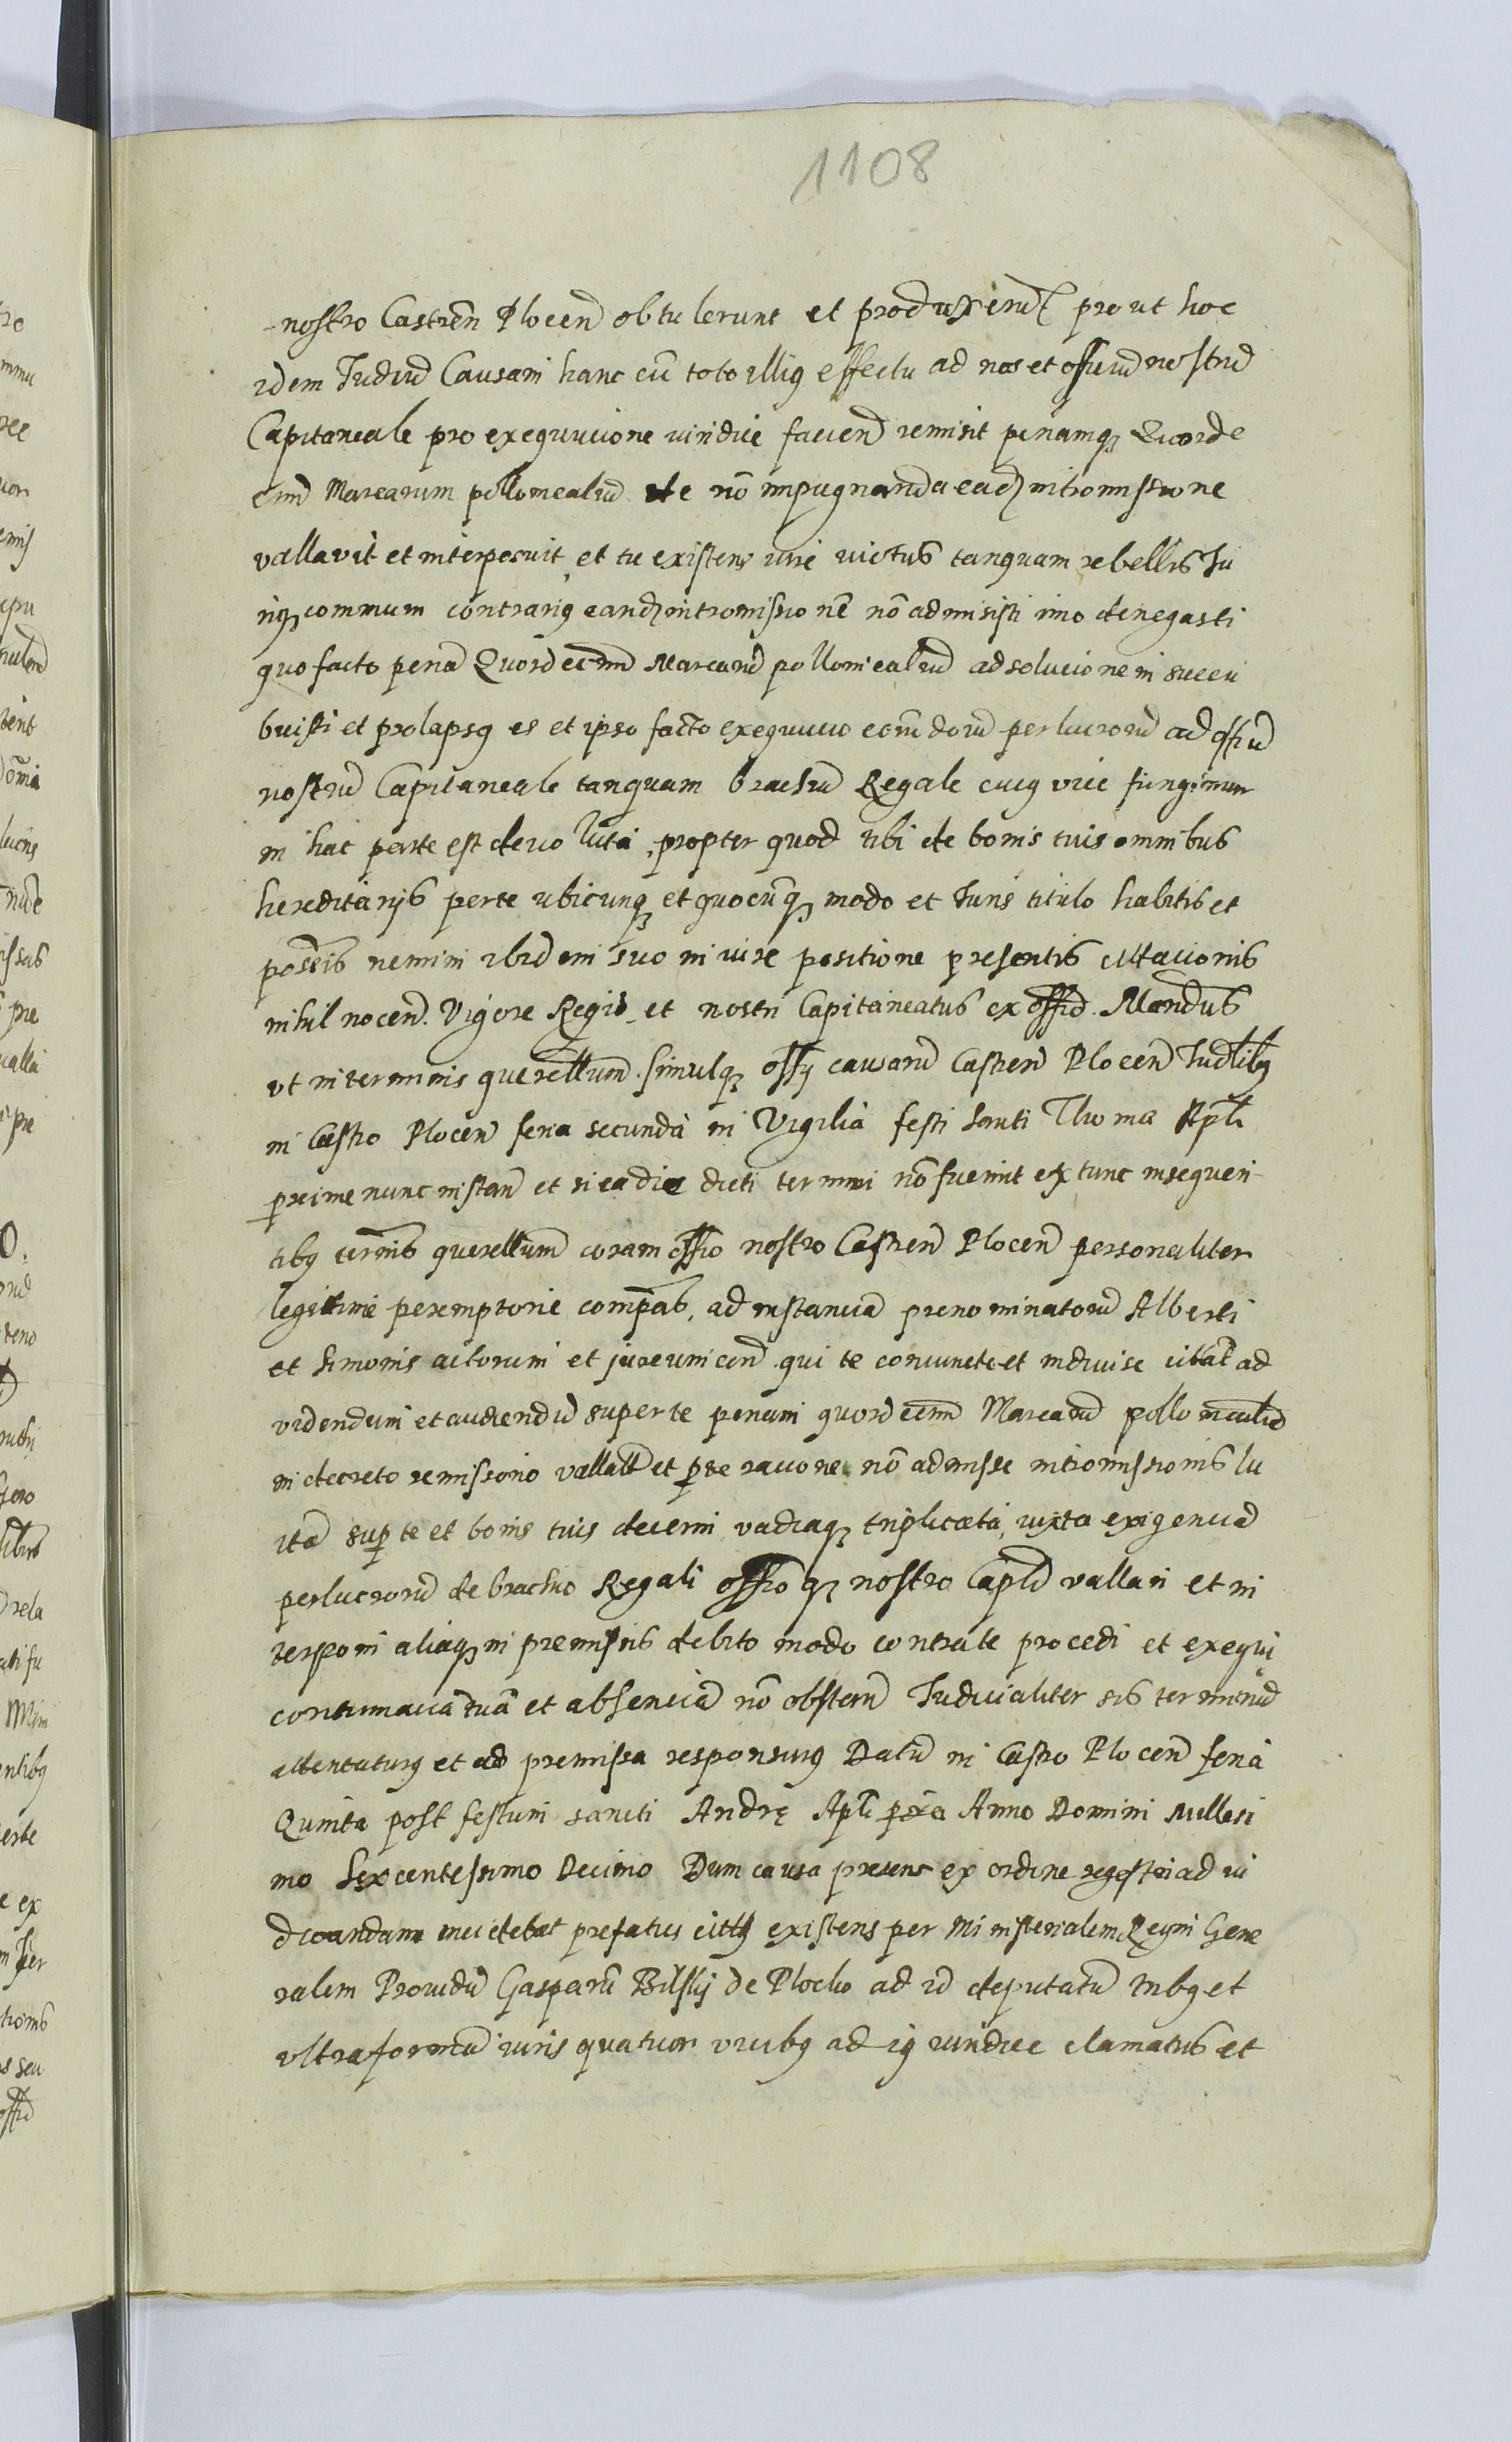 1108
nostro Castren̄ Plocen̄ obtulerunt et produxerūt prout hoc
idem Judiūm Causam hanc cū toto illig effectu ad nos et officiūm nostrūm
Capitaneale pro exequucione iuridice faciend remisit penamq Quorde
cim Marcarum pollonicaliūm de nō impugnanda ead intromissione
vallavit et interposuit et tu existens iure victus tanquam rebellis Ju
riq commum contrarig eand intromissionē nō admisisti imo denegasti
quo facto penā Quordecim Marcarūm pollonicaliūm ad solucionem succu
buisti et prolapsg es et ipso facto exequucio eorūdorūm perlucrorūm ad offiūm
nostrūm Capitaneale tanquam brachiūm Regale cuig vice fungimur
in hac parte est devoluta, propter quod tibi de bonis tuis omnibus
hereditarijs per te ubicunq et quocūq modo et Juris titulo habitis et
possēis nemini ibidem suo in iure positione presentis cittacionis
nihil nocen. Vigore Regio et nostri Capitaneatus ex offio. Mandūs
vt in terminis querellum. simulq offij causarūm Castren̄ Plocen̄ Judlibg
in Castro Plocen̄ feria secunda in Vigilia festi Sancti Thoma Apli
proxime nunc instan̄ et si ea die dicti termini nō fuerint extunc insequen-
tibg termis querellum coram offio nostro Castren̄ Plocen̄ personaliter
legittime peremptorie compas, ad instanciā prenominatorūm Alberti
et Simonis actorum et jurevincen̄ qui te coniuncte et indivise citāt ad
videndum et audiendūm super te penam quordecim Marcarūm pollonicaliūm
in decreto remissorio vallatā et per te racione nō admisse intromissionis lu
itā sup te et bonis tuis decerni vadiaq triplicata, iuxta exigenciā
perlucrorūm de brachio Regali offioq nostro Caplī vallari et in
terponi aliaq in premissis debito modo contra te procedi et exequi
contumaciā tuā et absenciā nō obstan̄ Judicialiter sis terminūm
attentaturg et ad premissa responsurg Datūm in Castro Plocen̄ feria
Quinta post festum sancti Andrę Apli pxia Anno Domini Millesi
mo Sexcentesimo Decimo Dum causa presens ex ordine regestri ad iu
dicandum incidebat prefatus cittg existens per Ministerialem Regni Gene
ralem Providūm Gasparū Bilskij de Plocko ad id deputatūm tribg et
vltra formā iuris quatuor vicibg ad ig iuridice clamatus et